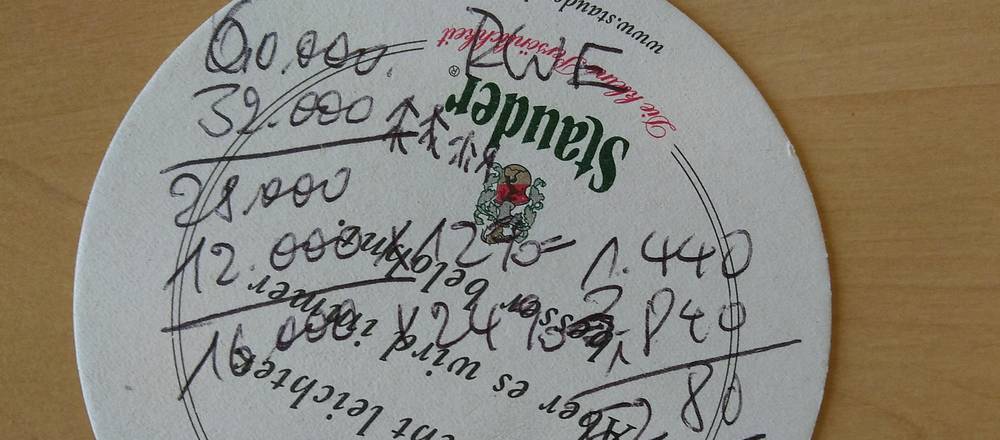 60.000. RWE
32.000
28.000
12.000 x 12%= 1.440
16.000 x 24% 3.840
80
www.staude
Die kleine Persönlichkeit
Stauder®
belohnt.
besser
er es wird immer
ht leichter